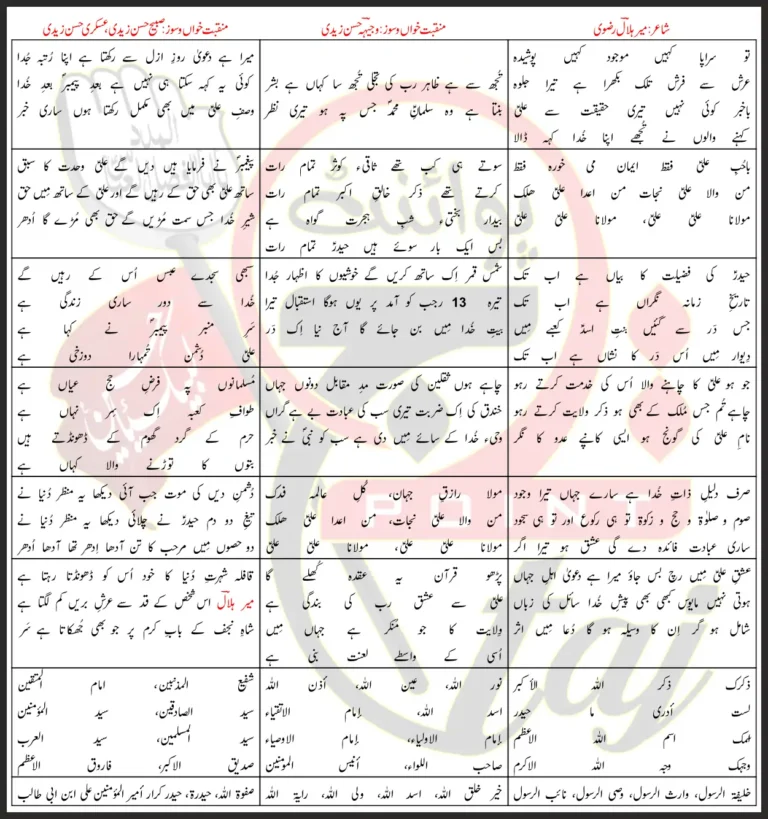 شاعر: میر ہلالؔ رضوی
منقبت خواں و سوز: وجیہہ حسن زیدی
منقبت خواں و سوز: صبیح حسن زیدی، عسکری حسن زیدی
تو سراپا کہیں موجود کہیں پوشیدہ
عرش سے فرش تلک بکھرا ہے تیرا جلوہ
باخبر کوئی نہیں تیری حقیقت سے علیؑ
کہنے والوں نے تجھے اپنا خدا کہہ ڈالا
تجھ سے ہے ظاہر رب کی تجلی تجھ سا کہاں ہے بشر
بنتا ہے وہ سلمانِ محمدؐ جس پہ ہو تیری نظر
میرا ہے دعویٰ روزِ ازل سے رکھتا ہے اپنا رُتبہ جُدا
کوئی یہ کہہ سکتا ہی نہیں ہے بعدِ پیمبرؐ بعدِ خُدا
وصفِ علیؑ میں بھی مکمل رکھتا ہوں ساری خبر
باحُبِ علیؑ فقط ایمان می خورہ فقط
من والا علیؑ نجات من اعدا علیؑ ھلک
مولانا علیؑ علیؑ، مولانا علیؑ علیؑ
سوتے ہی کب تھے ثاقیءِ کوثر تمام رات
کرتے تھے ذکرِ خالقِ اکبر تمام رات
بیدار بختیء شبِ ہجرت گواہ ہے
بس ایک بار سوئے ہیں حیدرؑ تمام رات
پیغمبرؐ نے فرمایا ہیں دیں گے علیؑ وحدت کا سبق
ساتھ علیؑ بھی حق کے رہیں گے اور علیؑ کے ساتھ میں حق
شیرِ خُدا جس سمت مُڑیں گے حق بھی مُڑے گا اُدھر
حیدرؑ کی فضیلت کا بیاں ہے اب تک
تاریخِ زمانہ نگراں ہے اب تک
جس دَر سے گئیں بنتِ اسدؑ کعبے میں
دیوار میں اُس دَر کا نشاں ہے اب تک
شمس قمر اِک ساتھ کریں گے خوشیوں کا اظہار جُدا
تیرہ 13 رجب کو آمد پر یوں ہوگا استقبال تیرا
بیتِ خُدا میں بن جائے گا آج نیا اِک دَر
سبھی سجدے عبس اُس کے رہیں گے
خُدا سے دور ساری زندگی ہے
سَرِ منبر پیمبرؐ نے کہا ہے
علیؑ دُشمن تُمہارا دوزخی ہے
جو ہو علیؑ کا چاہنے والا اُس کی خدمت کرتے رہو
چاہے تُم جس مُلک کے بھی ہو ذکرِ ولایت کرتے رہو
نامِ علیؑ کی گونج ہو ایسی کانپے عدو کا نگر
چاہے ہوں ثقلین کی صورت مدِ مقابل دونوں جہاں
خندق کی اِک ضربت تیری سب کی عبادت پے ہے گراں
وحیء خُدا کے سائے میں دی ہے سب کو نبیؐ نے خبر
مُسلمانوں پہ فرضِ حج عیاں ہے
طوافِ کعبہ اِک سِر نہاں ہے
حرم کے گرد گھوم کے ڈھونڈتے ہیں
بتوں کا توڑنے والا کہاں ہے
صرف دلیلِ ذاتِ خُدا ہے سارے جہاں تیرا وجود
صوم و صلوٰۃ و حج و زکوٰۃ تو ہی رکوع اور تو ہی سجود
ساری عبادت فائدہ دے گی عشق ہو تیرا اگر
مولا رازقِ جہان، گُلِ عالمہ فدک
من والا علیؑ نجات، من اعدا علیؑ ھلک
مولانا علیؑ علیؑ، مولانا علیؑ علیؑ
دُشمنِ دیں کی موت جب آئی دیکھا یہ منظر دُنیا نے
تیغِ دو دم حیدرؑ نے چلائی دیکھا یہ منظر دُنیا نے
دو حصوں میں مرحب کا تن آدھا اِدھر تھا آدھا اُدھر
عشقِ علیؑ میں رچ بس جاؤ میرا ہے دعویٰ اہلِ جہاں
ہوتی نہیں مایوس کبھی بھی پیشِ خُدا سائل کی زباں
شامل ہو گر اِن کا وسیلہ ہو گا دُعا میں اثر
پڑھو قرآن یہ عقدہ کُھلے گا
علیؑ سے عشق رب کی بندگی ہے
ولایت کا جو مُنکر ہے جہاں میں
اُسی کے واسطے لعنت بنی ہے
قافلہ شہرتِ دُنیا کا خود اُس کو ڈھونڈتا رہتا ہے
میر ہلالؔ اس شخص کے قد سے عرشِ بریں کم لگتا ہے
شاہِ نجف کے بابِ کرم پر جو بھی جُھکاتا ہے سَر
ذکرک ذکر اللہ الاکبر
لست أدری ما حیدر
اسمک اسم اللہ الاعظم
وجہک وجہ اللہ الاکرم
نور اللہ، عین اللہ، أذن اللہ
اسد اللہ، إمام الاتقیاء
إمام الاولیاء، إمام الاوصیاء
صاحب اللواء، أنیس المؤمنین
شفیع المذنبین، امام المتقین
سید الصادقین، سید المؤمنین
سید المسلمین، سید العرب
صدیق الاکبر، فاروق الاعظم
خلیفۃ الرسول، وارث الرسول، وصی الرسول، نائب الرسول
خیر خلق اللہ، اسد اللہ، ولی اللہ، رایۃ اللہ
صفوۃ اللہ، حیدرۃ، حیدر کرار أمیر المؤمنین علی ابن ابی طالب
پوائنٹ
POINT
taj